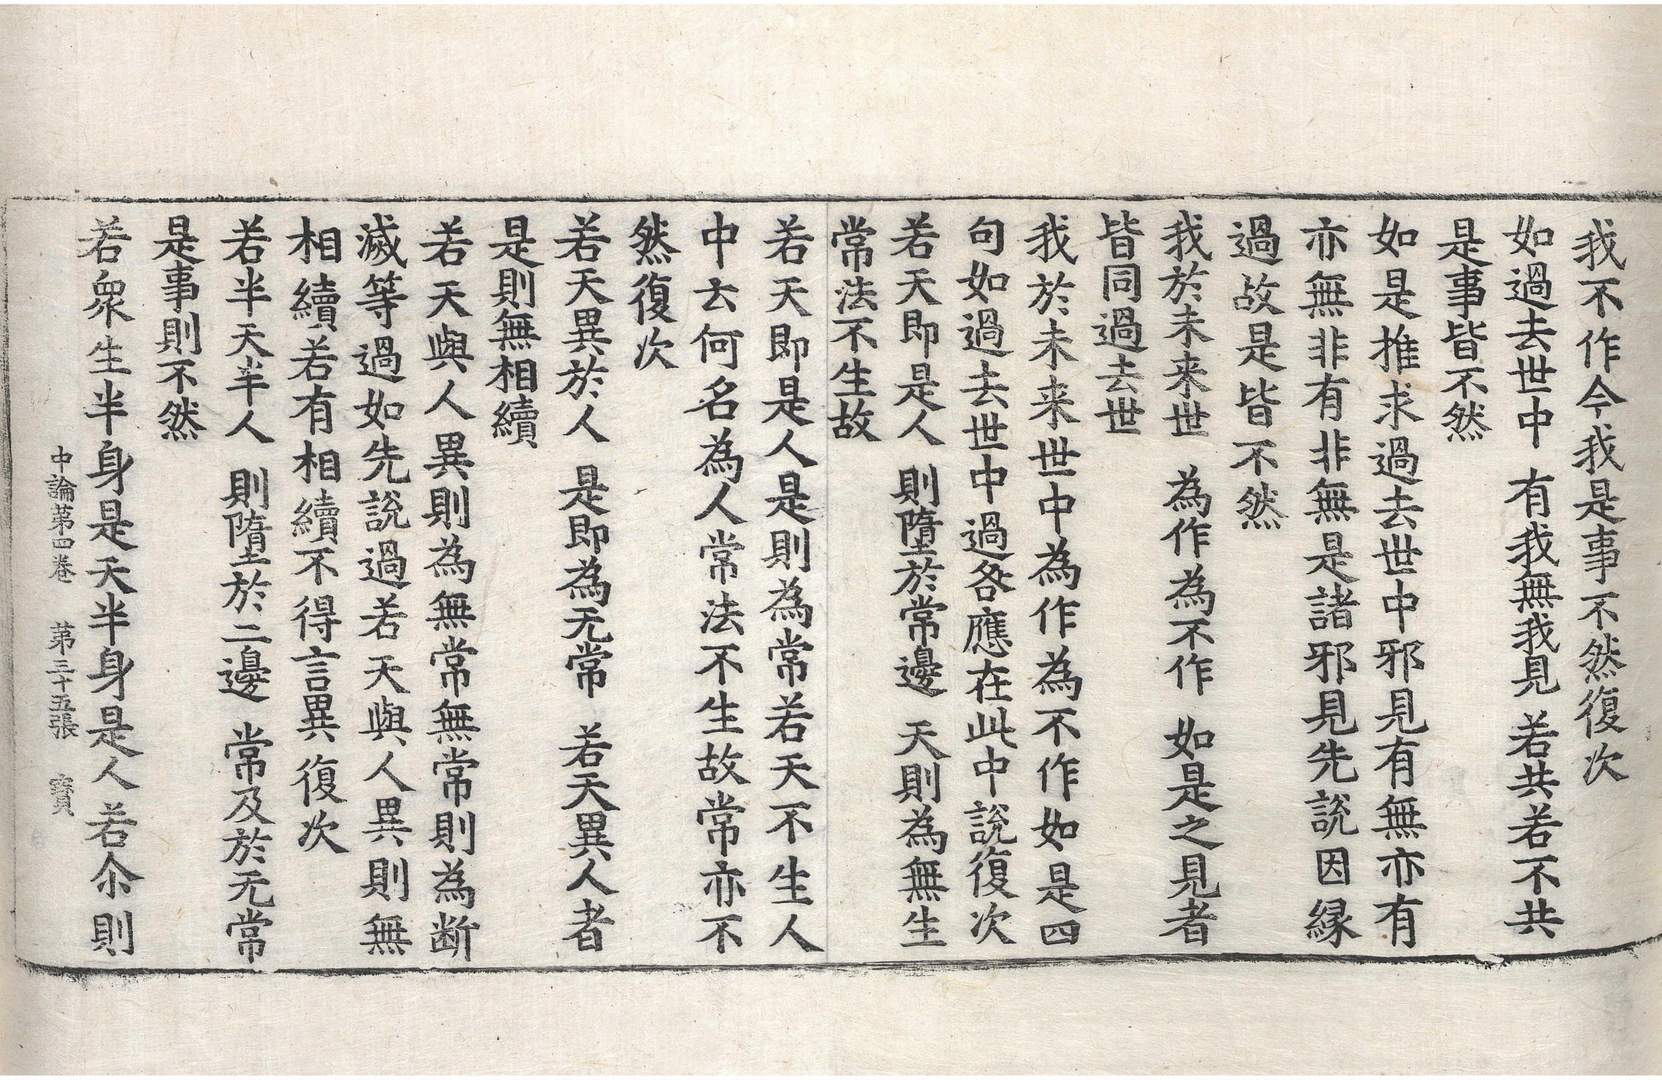 我不作今我是事不然復次
如過去世中 有我無我見 若共若不共
是事皆不然
如是推求過去世中邪見有無亦有
亦無非有非無是諸邪見先說因緣
過故是皆不然
我於未来世 為作為不作 如是之見者
皆同過去世
我於未来世中為作為不作如是四
句如過去世中過咎應在此中說復次
若天即是人 則墮於常邊 天則為無生
常法不生故
若天即是人是則為常若天不生人
中去何名為人常法不生故常亦不
然復次
若天異於人 是即為无常 若天異人者
是則無相續
若天與人異則為無常無常則為断
滅等過如先說過若天與人異則無
相續若有相續不得言異復次
若半天半人 則墮於二邊 常及於无常
是事則不然
若衆生半身是天半身是人若尒則
中論第四卷 第三十五張 寶